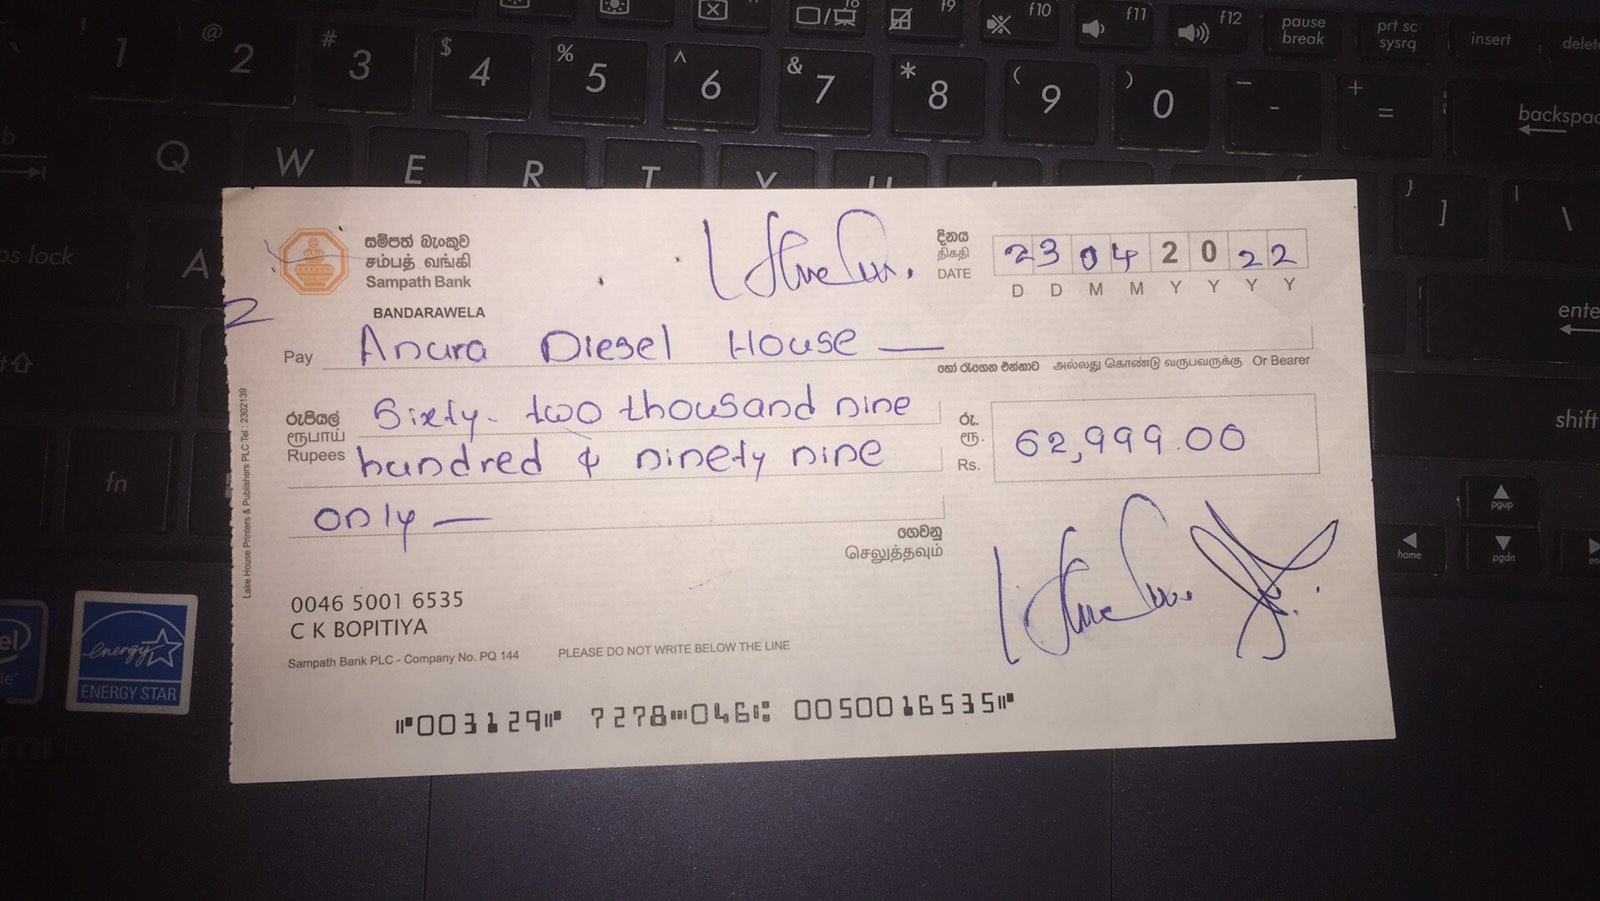 f9 f10 f11 f12 pause break prt sc sysrq insert delete
! 1 @ 2 # 3 $ 4 % 5 ^ 6 & 7 * 8 ( 9 ) 0 _ - + = backspac
Q W E R T Y U } ] | \
ps lock A
enter
shift
fn
pgup
home pgdn
සම්පත් බැංකුව
சம்பத் வங்கி
Sampath Bank
BANDARAWELA
දිනය
திகதி
DATE
23 04 20 22
D D M M Y Y Y Y
Pay Anura Diesel House —
හෝ රැගෙන එන්නාට அல்லது கொண்டு வருபவருக்கு Or Bearer
රුපියල්
ரூபாய்
Rupees
Sixty- two thousand nine
hundred & ninety nine
only —
රු.
ரூ.
Rs.
62,999.00
ගෙවනු
செலுத்தவும்
0046 5001 6535
C K BOPITIYA
Sampath Bank PLC - Company No. PQ 144 PLEASE DO NOT WRITE BELOW THE LINE
⑈003129⑈ 7278⑉046⑆ 0050016535⑈
Lake House Printers & Publishers PLC Tel : 2302139
energy
ENERGY STAR